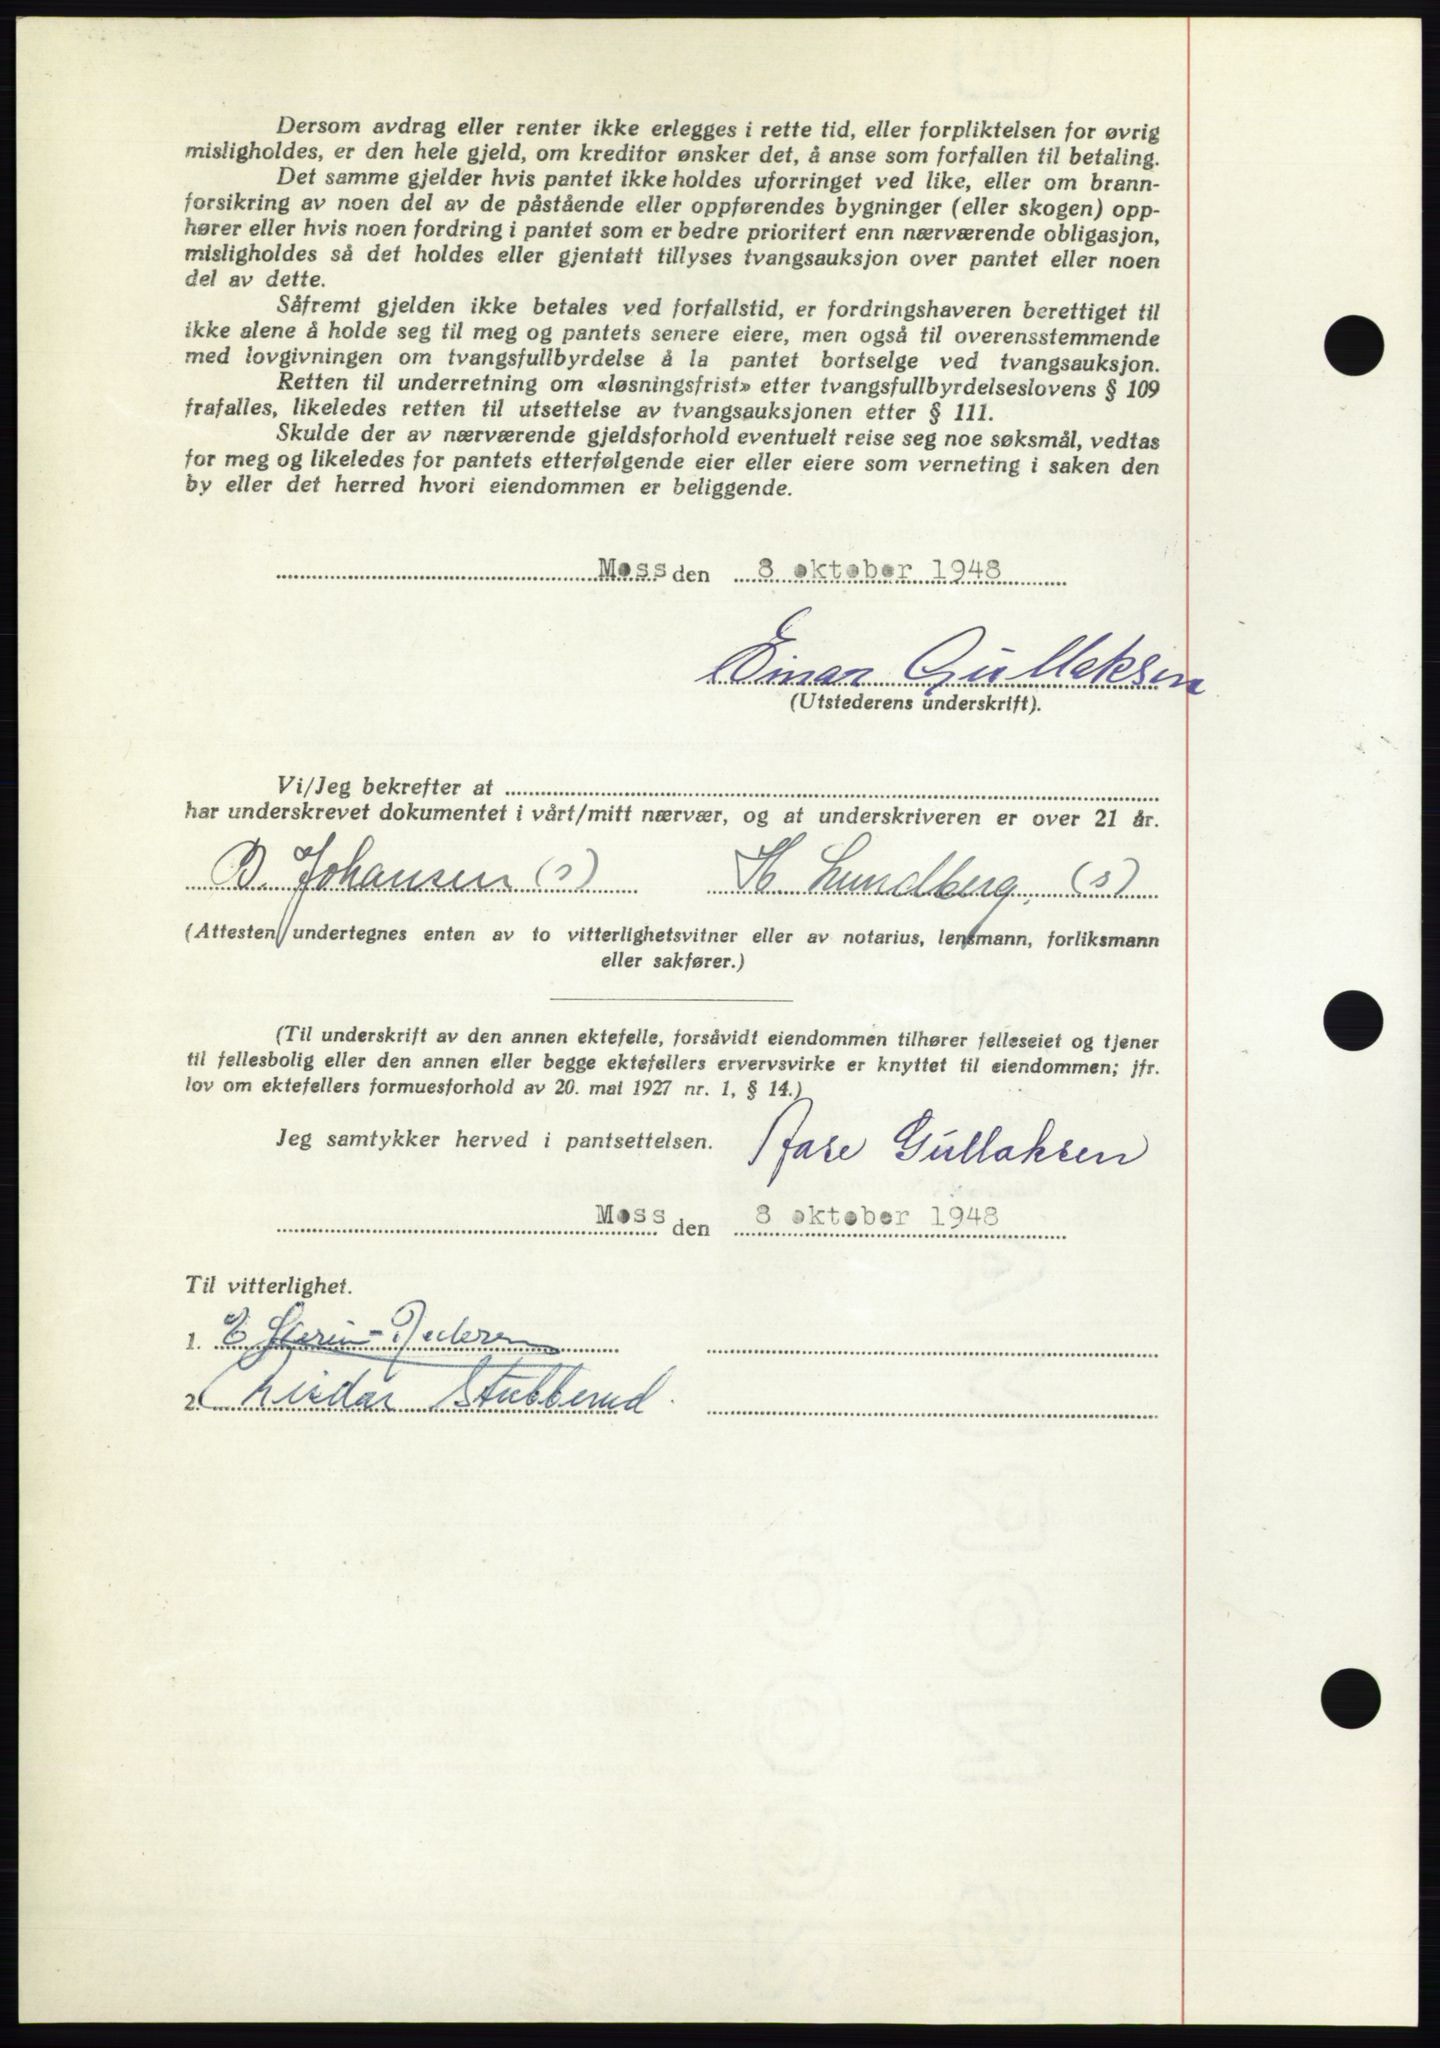 Dersom avdrag eller renter ikke erlegges i rette tid, eller forpliktelsen for øvrig
misligholdes, er den hele gjeld, om kreditor ønsker det, å anse som forfallen til betaling.
Det samme gjelder hvis pantet ikke holdes uforringet ved like, eller om brann-
forsikring av noen del av de påstående eller oppførendes bygninger (eller skogen) opp-
hører eller hvis noen fordring i pantet som er bedre prioritert enn nærværende obligasjon,
misligholdes så det holdes eller gjentatt tillyses tvangsauksjon over pantet eller noen
del av dette.
Såfremt gjelden ikke betales ved forfallstid, er fordringshaveren berettiget til
ikke alene å holde seg til meg og pantets senere eiere, men også til overensstemmende
med lovgivningen om tvangsfullbyrdelse å la pantet bortselge ved tvangsauksjon.
Retten til underretning om «løsningsfrist» etter tvangsfullbyrdelseslovens § 109
frafalles, likeledes retten til utsettelse av tvangsauksjonen etter § 111.
Skulde der av nærværende gjeldsforhold eventuelt reise seg noe søksmål, vedtas
for meg og likeledes for pantets etterfølgende eier eller eiere som verneting i saken den
by eller det herred hvori eiendommen er beliggende.
Moss den 8 oktober 1948
Einar Gullaksen
(Utstederens underskrift).
Vi/Jeg bekrefter at
har underskrevet dokumentet i vårt/mitt nærvær, og at underskriveren er over 21 år.
B. Johansen (s) H Lundberg, (s)
(Attesten undertegnes enten av to vitterlighetsvitner eller av notarius, lensmann, forliksmann
eller sakfører.)
(Til underskrift av den annen ektefelle, forsåvidt eiendommen tilhører felleseiet og tjener
til fellesbolig eller den annen eller begge ektefellers ervervsvirke er knyttet til eiendommen; jfr.
lov om ektefellers formuesforhold av 20. mai 1927 nr. 1, § 14.)
Jeg samtykker herved i pantsettelsen. Aase Gullaksen
Moss den 8 oktober 1948
Til vitterlighet.
1. E
2. Stubberud